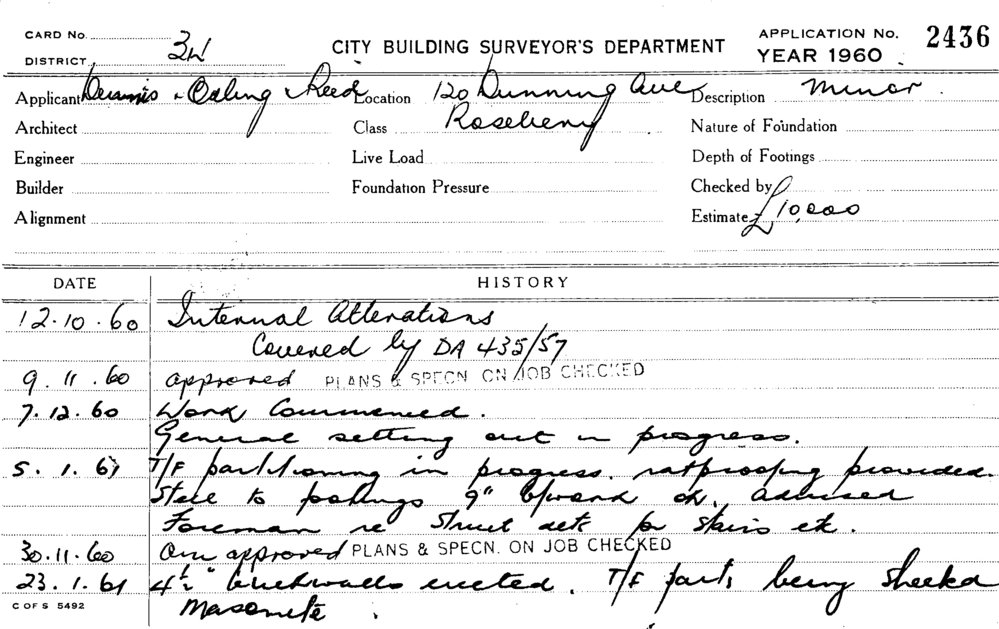 CARD No.
DISTRICT 3W
CITY BUILDING SURVEYOR'S DEPARTMENT
APPLICATION No. 2436
YEAR 1960
Applicant Dennis Oxling & Reed Location 120 Dunning Ave Description Minor
Architect Class Rosebery Nature of Foundation
Engineer Live Load Depth of Footings
Builder Foundation Pressure Checked by
Alignment Estimate £10,000
DATE HISTORY
12.10.60 Internal Alterations
Covered by DA 435/57
9.11.60 approved PLANS & SPECN. ON JOB CHECKED
7.12.60 Work Commenced.
General setting out in progress.
5.1.61 T/F partitioning in progress. ratproofing provided.
Steel to footings 9" b/work ok. advised
Foreman re struct dets for stairs etc.
30.11.60 approved PLANS & SPECN. ON JOB CHECKED
23.1.61 4½" brickwalls erected. T/F parts being sheeted
Masonite.
C OF S 5492